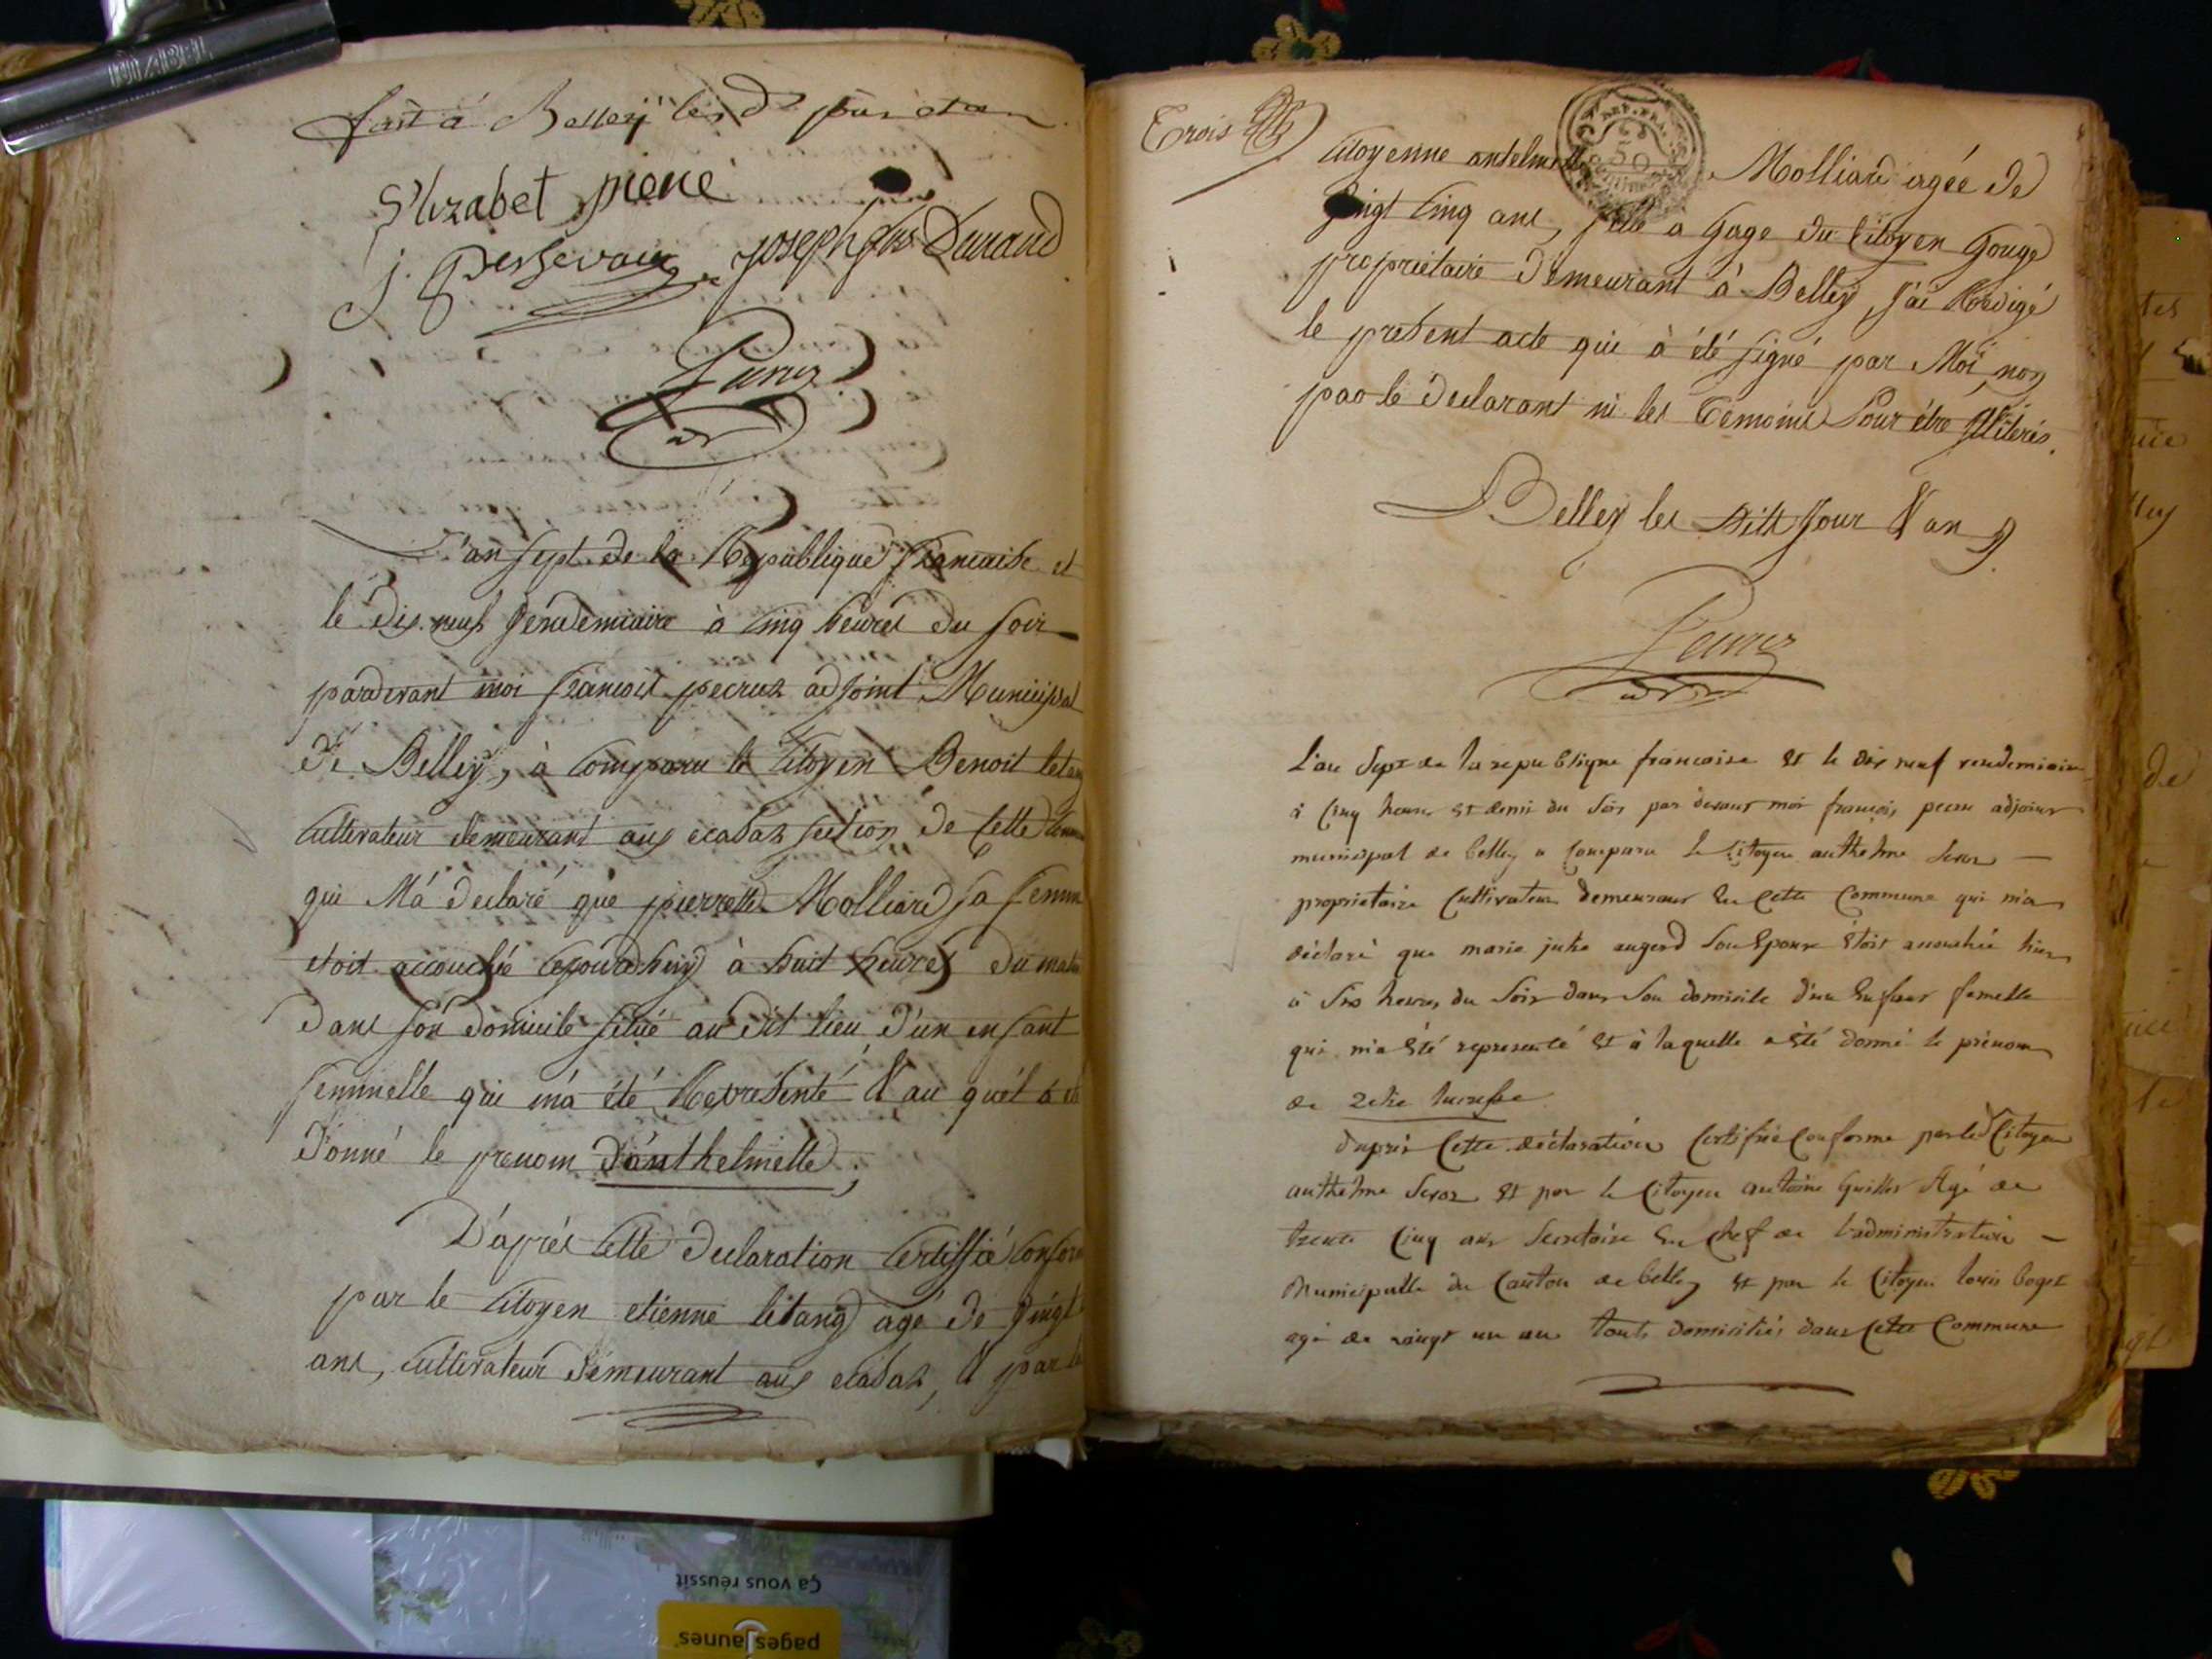 fait à Belley les d. jour et an
Elizabet piene
j. Dessevaux joseph fils Durand
Peuruz
L'an sept de la Republique francaise et
le dix neuf Vendemiaire à Cinq heures du soir
pardevant moi francois pecruz adjoint Municipal
de Belley, à comparu le Citoyen Benoit letang
Cultivateur demeurant aux ecadaz section de Cette
qui M'a declaré que pierrette Molliard sa femme
etoit accouchée cejourdhuy à huit heures du matin
dans son domicile situé au dit lieu d'un enfant
femmelle qui m'a été Representé & au quel à été
donné le prenom d'anthelmette;
D'aprés Cette declaration Certiffié Conforme
par le Citoyen etienne letang agé de Vingt
ans, cultivateur demeurant aux ecadaz, & par la
Trois
REP. FRA.
50
Citoyenne antelmette Molliard agée de
Vingt Cinq ans, fille a gage du Citoyen Gouge
proprietaire demeurant à Belley, j'ai Redigé
le present acte qui à été signé par Moi, non
par le declarant ni les Temoins Pour être Illiterés.
Belley les dits Jour & an
Peuruz
L'an Sept de la republique francaise et le dix neuf vendemiaire
à Cinq heures et demi du Soir par devant moi françois pecru adjoint
municipal de belley a Comparu le Citoyen anthelme
proprietaire Cultivateur demeurant en Cette Commune qui m'a
déclaré que marie julie augerd Son Epouse étoit accouchée hier
à Six heures du Soir dans Son domicile d'un Enfant femelle
qui m'a été representé et à laquelle a été donné le prénom
de
d'après Cette déclaration Certifiée Conforme par le d Citoyen
anthelme et par le Citoyen antoine Agé de
trente Cinq ans Secretaire En Chef de l'administration
Municipalle du Canton de belley et par le Citoyen louis boget
agé de vingt un ans touts domiciliés dans Cette Commune
Ça vous réussit
pagesJaunes